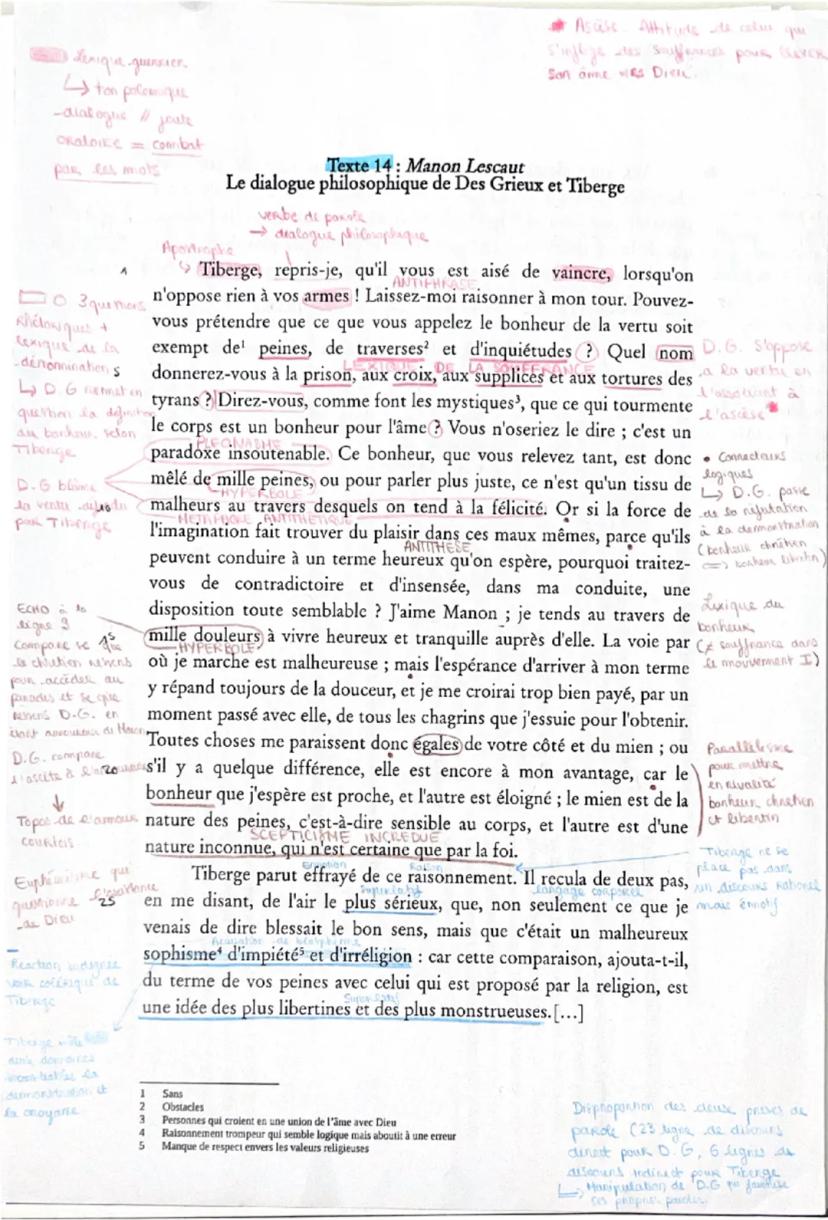 Lexique guerrier
↳ ton polémique
-dialogue // joute
ORATOIRE = combat
par les mots
* Ascèse. Attitude de celui qui
s'inflige des souffrances pour élever
son âme vers Dieu.
Texte 14 : Manon Lescaut
Le dialogue philosophique de Des Grieux et Tiberge
verbe de parole
→ dialogue philosophique
Apostrophe
Tiberge, repris-je, qu'il vous est aisé de vaincre, lorsqu'on
ANTIPHRASE
n'oppose rien à vos armes ! Laissez-moi raisonner à mon tour. Pouvez-
vous prétendre que ce que vous appelez le bonheur de la vertu soit
exempt de¹ peines, de traverses² et d'inquiétudes ? Quel nom
LEXIQUE DE LA SOUFFRANCE
donnerez-vous à la prison, aux croix, aux supplices et aux tortures des
tyrans ? Direz-vous, comme font les mystiques³, que ce qui tourmente
le corps est un bonheur pour l'âme ? Vous n'oseriez le dire ; c'est un
PLEONASME
paradoxe insoutenable. Ce bonheur, que vous relevez tant, est donc
mêlé de mille peines, ou pour parler plus juste, ce n'est qu'un tissu de
HYPERBOLE
malheurs au travers desquels on tend à la félicité. Or si la force de
METAPHORE ANTITHETIQUE
l'imagination fait trouver du plaisir dans ces maux mêmes, parce qu'ils
ANTITHESE
peuvent conduire à un terme heureux qu'on espère, pourquoi traitez-
vous de contradictoire et d'insensée, dans ma conduite, une
disposition toute semblable ? J'aime Manon ; je tends au travers de
mille douleurs à vivre heureux et tranquille auprès d'elle. La voie par
HYPERBOLE
où je marche est malheureuse ; mais l'espérance d'arriver à mon terme
y répand toujours de la douceur, et je me croirai trop bien payé, par un
moment passé avec elle, de tous les chagrins que j'essuie pour l'obtenir.
Toutes choses me paraissent donc égales de votre côté et du mien ; ou
s'il y a quelque différence, elle est encore à mon avantage, car le
bonheur que j'espère est proche, et l'autre est éloigné ; le mien est de la
nature des peines, c'est-à-dire sensible au corps, et l'autre est d'une
SCEPTICISME INCREDUE
nature inconnue, qui n'est certaine que par la foi.
Emotion Raison
Tiberge parut effrayé de ce raisonnement. Il recula de deux pas,
Superlatif langage corporel
en me disant, de l'air le plus sérieux, que, non seulement ce que je
venais de dire blessait le bon sens, mais que c'était un malheureux
Accusation de blasphème
sophisme⁴ d'impiété⁵ et d'irréligion : car cette comparaison, ajouta-t-il,
du terme de vos peines avec celui qui est proposé par la religion, est
Superlatif
une idée des plus libertines et des plus monstrueuses. […]
3 questions
rhétoriques +
lexique de la
dénomination
↳ D.G remet en
question la définition
du bonheur selon
Tiberge
5
D.G blâme
la vertu
par Tiberge
ECHO à la
ligne 9
15
Compare ce que
le chrétien ressens
pour accéder au
paradis et ce que
ressens D.G. en
étant amoureux de Manon
D.G. compare
l'ascète à l'amoureux
20
↓
Topos de l'amour
courtois
Euphémisme qui
questionne l'existence
de Dieu
25
Réaction indignée
voir colérique de
Tiberge
Tiberge mêle
deux domaines
la
démonstration et
la croyance
D.G. s'oppose
à la vertu en
l'associant à
l'ascèse *
• Connecteurs
logiques
↳ D.G. passe
de la réfutation
à la démonstration
(bonheur chrétien
⟺ bonheur libertin)
Lexique du
bonheur
(≠ souffrance dans
le mouvement I)
Parallélisme
pour mettre
en rivalité
bonheur chrétien
et libertin
Tiberge ne se
place pas dans
un discours rationel
mais émotif
1 Sans
2 Obstacles
3 Personnes qui croient en une union de l'âme avec Dieu
4 Raisonnement trompeur qui semble logique mais aboutit à une erreur
5 Manque de respect envers les valeurs religieuses
Disproportion des deux prises de
parole (23 ligne de discours
direct pour D.G, 6 lignes de
discours indirect pour Tiberge
↳ Manipulation de D.G qui favorise
ses propres paroles.